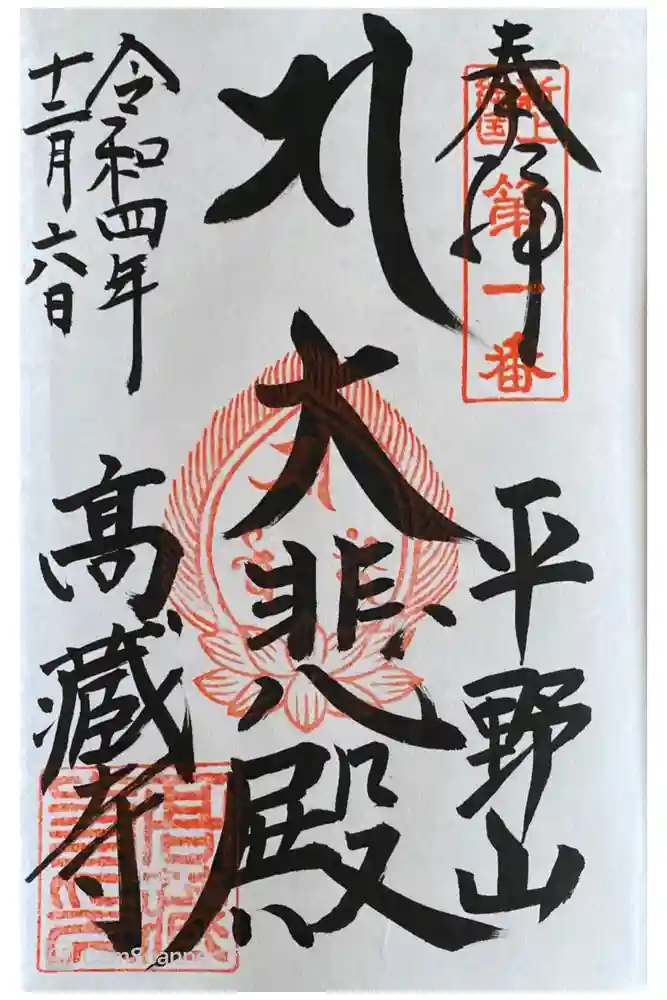 奉拝
新上
総国
第一番
平野山
大悲殿
令和四年
十二月六日
高蔵寺